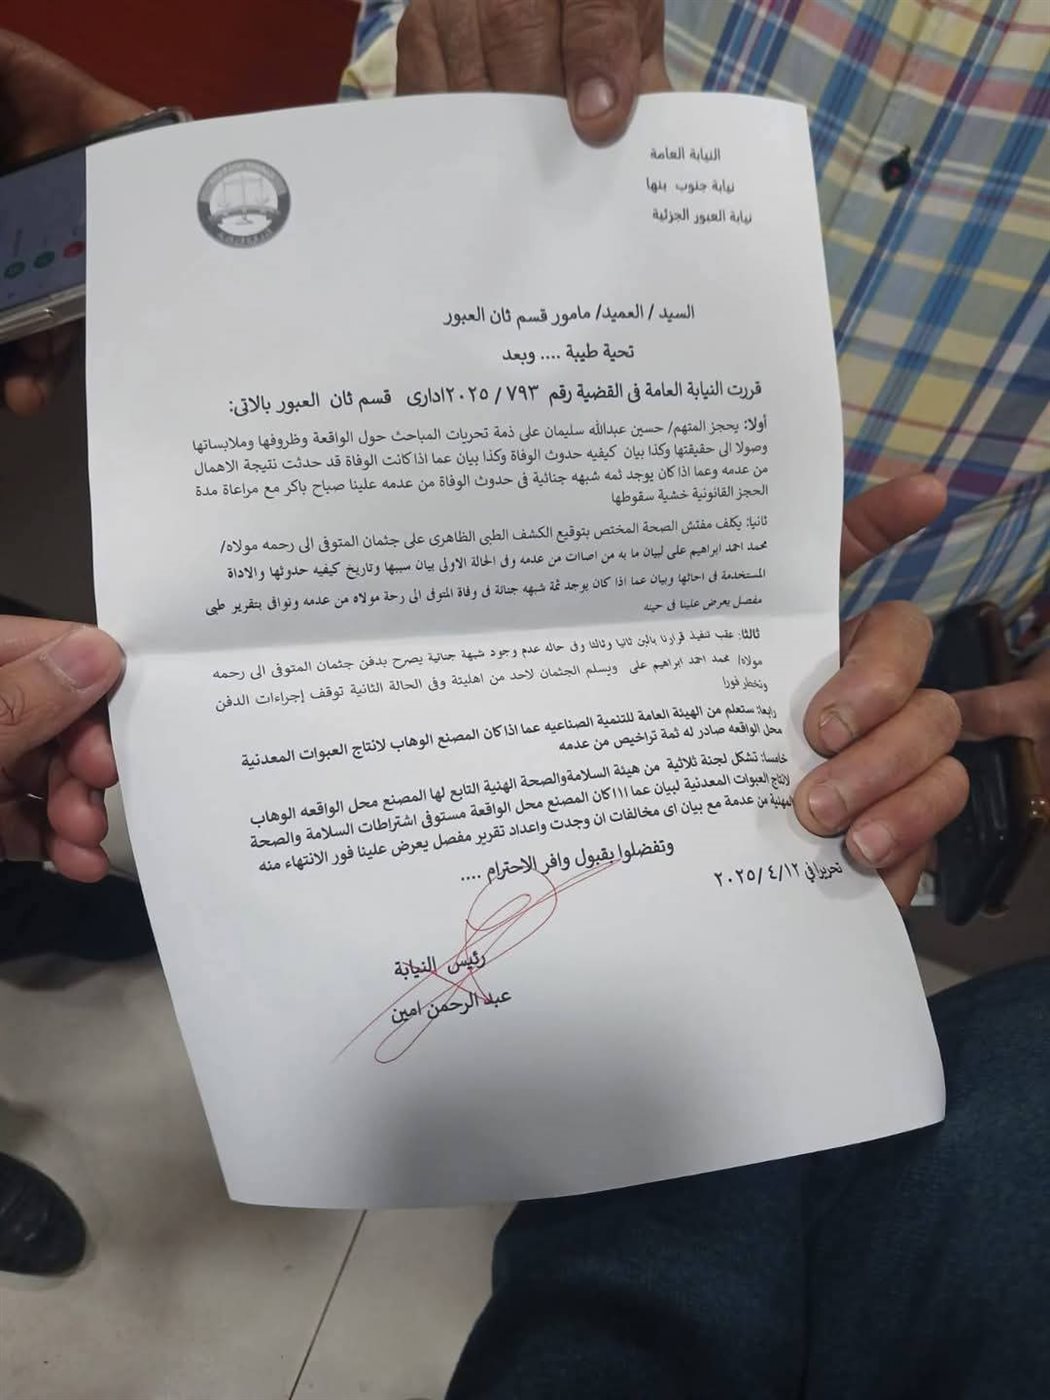 النيابة العامة
نيابة جنوب بنها
نيابة العبور الجزئية
السيد / العميد/ مامور قسم ثان العبور
تحية طيبة .... وبعد
قررت النيابة العامة فى القضية رقم ٧٩٣ / ٢٠٢٥ادارى قسم ثان العبور بالاتى:
أولا: يحجز المتهم/ حسين عبدالله سليمان على ذمة تحريات المباحث حول الواقعة وظروفها وملابساتها
وصولا الى حقيقتها وكذا بيان كيفيه حدوث الوفاة وكذا بيان عما اذا كانت الوفاة قد حدثت نتيجة الاهمال
من عدمه وعما اذا كان يوجد ثمه شبهه جنائية فى حدوث الوفاة من عدمه علينا صباح باكر مع مراعاة مدة
الحجز القانونية خشية سقوطها
ثانيا: يكلف مفتش الصحة المختص بتوقيع الكشف الطبى الظاهرى على جثمان المتوفى الى رحمه مولاه/
محمد احمد ابراهيم على لبيان ما به من اصاات من عدمه وفى الحالة الاولى بيان سببها وتاريخ كيفيه حدوثها والاداة
المستخدمة فى احاثها وبيان عما اذا كان يوجد ثمة شبهه جنائة فى وفاة المتوفى الى رحة مولاه من عدمه ونوافى بتقرير طبى
مفصل يعرض علينا فى حينه
ثالثا: عقب تنفيذ قرارنا بالبن ثانيا وثالثا وفى حاله عدم وجود شبهة جنائية يصرح بدفن جثمان المتوفى الى رحمه
مولاه/ محمد احمد ابراهيم على ويسلم الجثمان لاحد من اهليتة وفى الحالة الثانية توقف إجراءات الدفن
ونخطر فورا
رابعا: ستعلم من الهيئة العامة للتنمية الصناعيه عما اذا كان المصنع الوهاب لانتاج العبوات المعدنية
محل الواقعه صادر له ثمة تراخيص من عدمه
خامسا: تشكل لجنة ثلاثية من هيئة السلامةوالصحة الهنية التابع لها المصنع محل الواقعه الوهاب
لانتاج العبوات المعدنية لبيان عما ااا كان المصنع محل الواقعة مستوفى اشتراطات السلامة والصحة
المهنية من عدمة مع بيان اى مخالفات ان وجدت واعداد تقرير مفصل يعرض علينا فور الانتهاء منه
وتفضلوا بقبول وافر الاحترام ....
تحريرا في ٢٠٢٥/ ٤/١٢
رئيس النيابة
عبد الرحمن امين